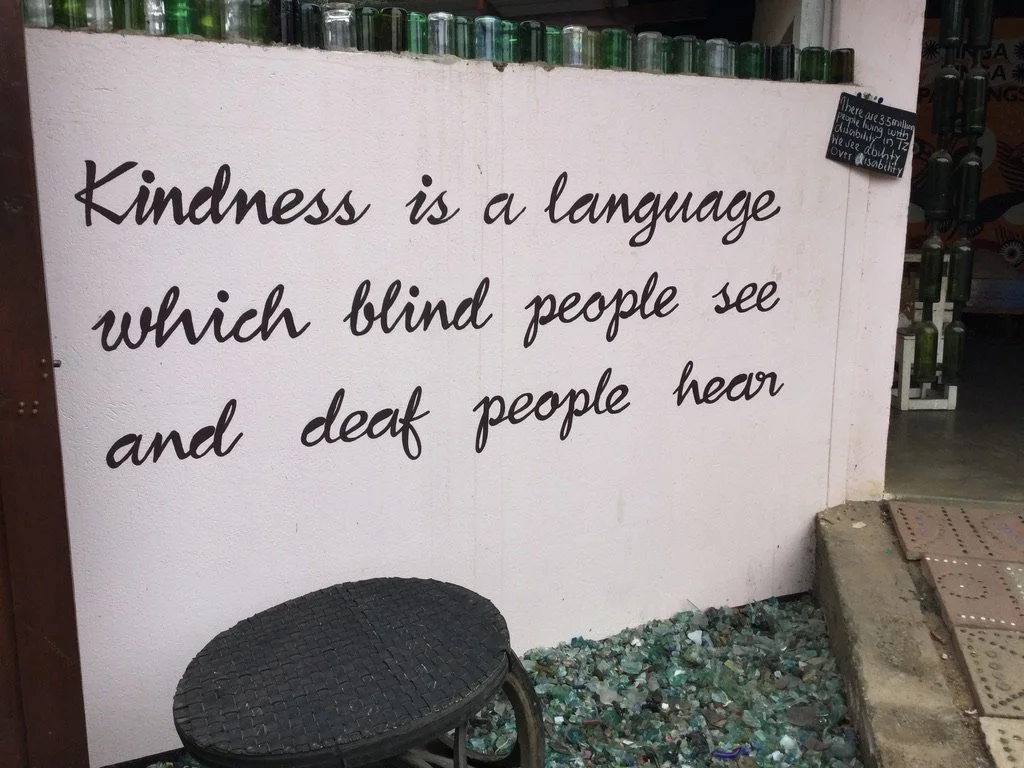 Kindness is a language
which blind people see
and deaf people hear
There are 3.5 million
people living with
disability in TZ
We see ability
over disability
TINGA
TINGA
PAINTINGS